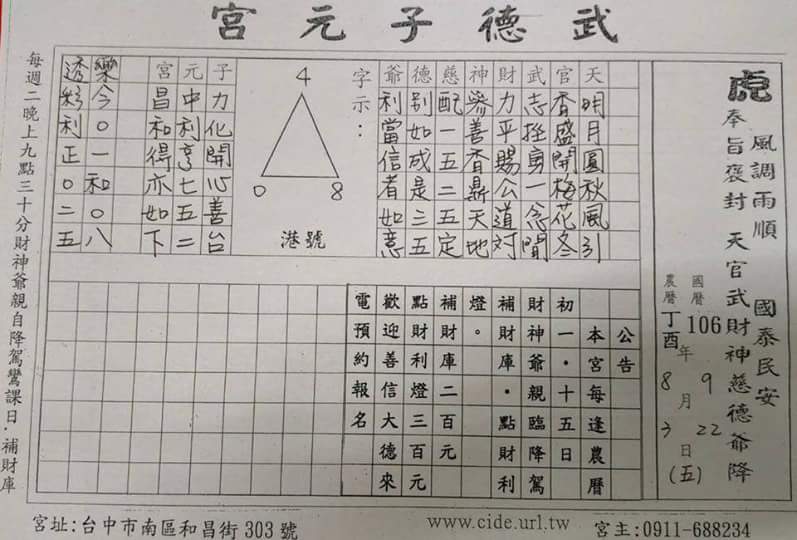 武德子元宮
風調雨順 國泰民安
虎
奉旨褒封 天官武財神慈德爺降
國曆 106年 9月 22日(五)
農曆 丁酉 8 3
天明月圓秋風引
官香盛開梅花冬
武志勇一念
財力平賜公道對
神參善香鼎天地
慈配一五二五定
德別如成是三五
爺利當信者如意
字示：
4
0 8
港號
子力化開心善台
元中利亨七五二
宮昌和得亦如下
樂今０一和０八
透彩利正０二五
公告
本宮每逢農曆
初一‧十五日
財神爺親臨降駕
補財庫‧點財利
燈。
補財庫二百元
點財利燈三百元
歡迎善信大德來
電預約報名
每週二晚上九點三十分財神爺親自降駕鸞課日‧補財庫
宮址:台中市南區和昌街303號
www.cide.url.tw
宮主:0911-688234